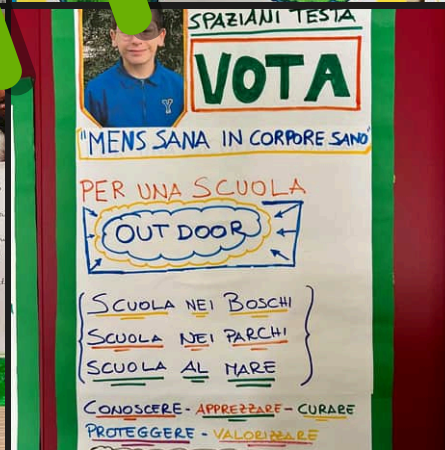 SPAZIANI TESTA
VOTA
"MENS SANA IN CORPORE SANO"
PER UNA SCUOLA
OUTDOOR
SCUOLA NEI BOSCHI
SCUOLA NEI PARCHI
SCUOLA AL MARE
CONOSCERE - APPREZZARE - CURARE
PROTEGGERE - VALORIZZARE